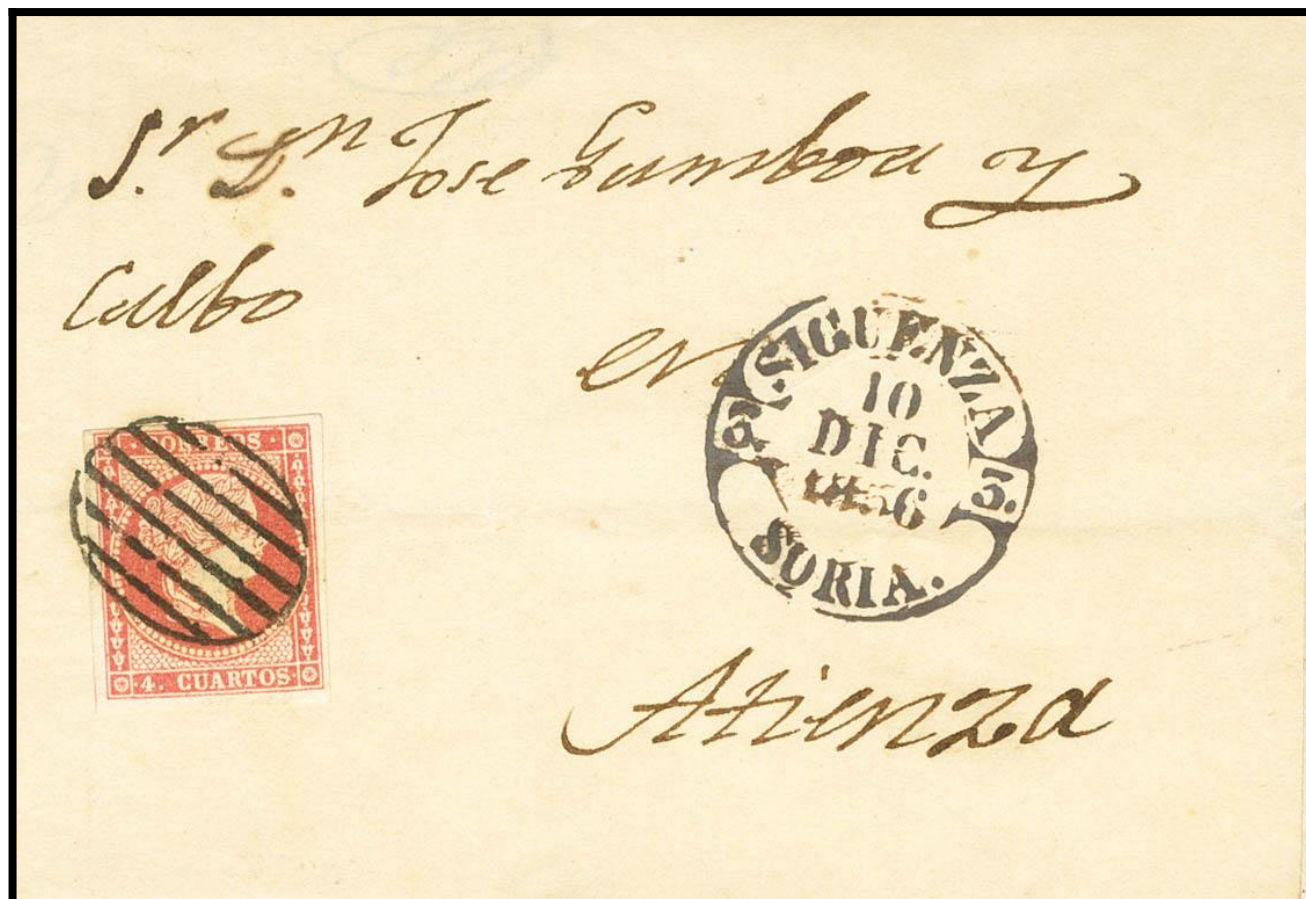 Sr. Dn Jose Gamboa y
Calbo
en
SIGUENZA
10
DIC.
1856
SORIA.
Atienza
CORREOS
4. CUARTOS